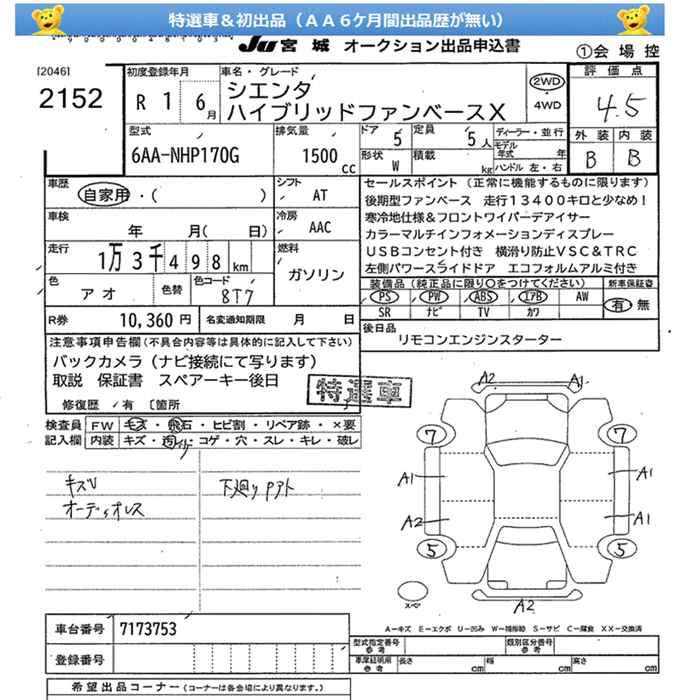 特選車＆初出品（ＡＡ６ケ月間出品歴が無い）
JU 宮城 オークション出品申込書
①会場控
[2046]
2152
初度登録年月
R 1 6月
車名・グレード
シエンタ
ハイブリッドファンベースＸ
2WD
4WD
評価点
4.5
外装 内装
B B
型式
6AA-NHP170G
排気量
1500 cc
ドア 5
定員 5人
ディーラー・並行
形状 W
積載 kg
モデル年式 年
ハンドル 左・右
車歴
自家用・( )
シフト AT
車検
年 月( 日)
冷房 AAC
走行
1万3千498km
燃料
ガソリン
色
アオ
色替
色コード
8T7
R券 10,360円
名変通知期限 月 日
セールスポイント（正常に機能するものに限ります）
後期型ファンベース 走行１３４００キロと少なめ！
寒冷地仕様＆フロントワイパーデアイサー
カラーマルチインフォメーションディスプレー
ＵＳＢコンセント付き 横滑り防止ＶＳＣ＆ＴＲＣ
左側パワースライドドア エコフォルムアルミ付き
装備品（純正品に限り○をつけてください）
新車保証書
PS PW ABS エアB AW
SR ナビ TV カワ
有 無
後日品
リモコンエンジンスターター
注意事項申告欄(不具合内容等は具体的に記入して下さい)
バックカメラ（ナビ接続にて写ります）
取説 保証書 スペアーキー後日
特選車
修復歴 有 〔箇所
検査員記入欄
FW キズ・飛石・ヒビ割・リペア跡・×要
内装 キズ・コゲ・穴・スレ・キレ・破レ
キズV
オーディオレス
下廻りPアト
A2 A1
7 7
A1 A1
A2 A1
5 5
スペア
A2
A－キズ E－エクボ U－凹み W－補修跡 S－サビ C－腐食 XX－交換済
車台番号 7173753
登録番号
型式指定番号 参考
類別区分番号 参考
車庫証明用 参考
長さ cm
幅 cm
高さ cm
希望出品コーナー（コーナーは各会場により異なります）